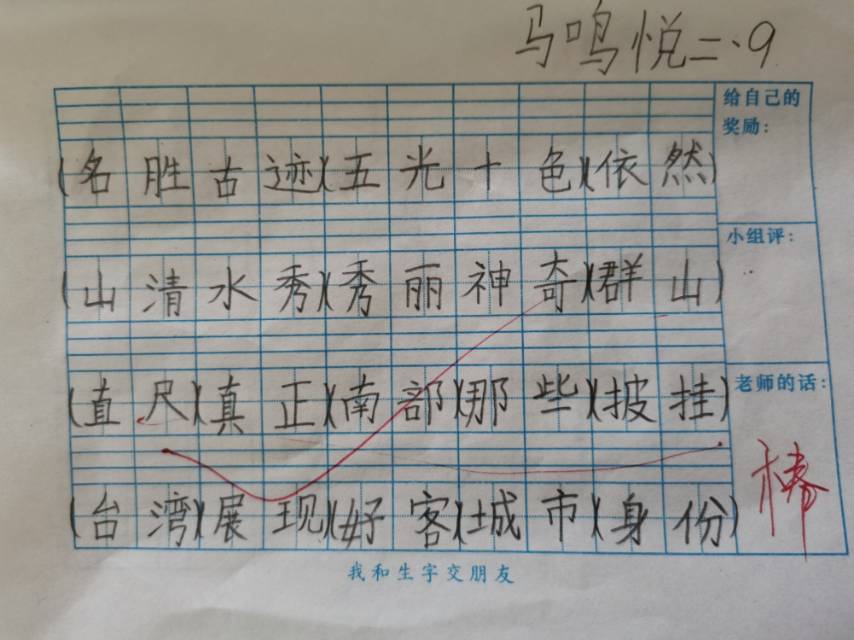 马鸣悦二.9
给自己的
奖励:
(名胜古迹)(五光十色)(依然)
小组评:
(山清水秀)(秀丽神奇)(群山)
老师的话:
(直尺)(真正)(南部)(那些)(披挂)
棒
(台湾)(展现)(好客)(城市)(身份)
我和生字交朋友